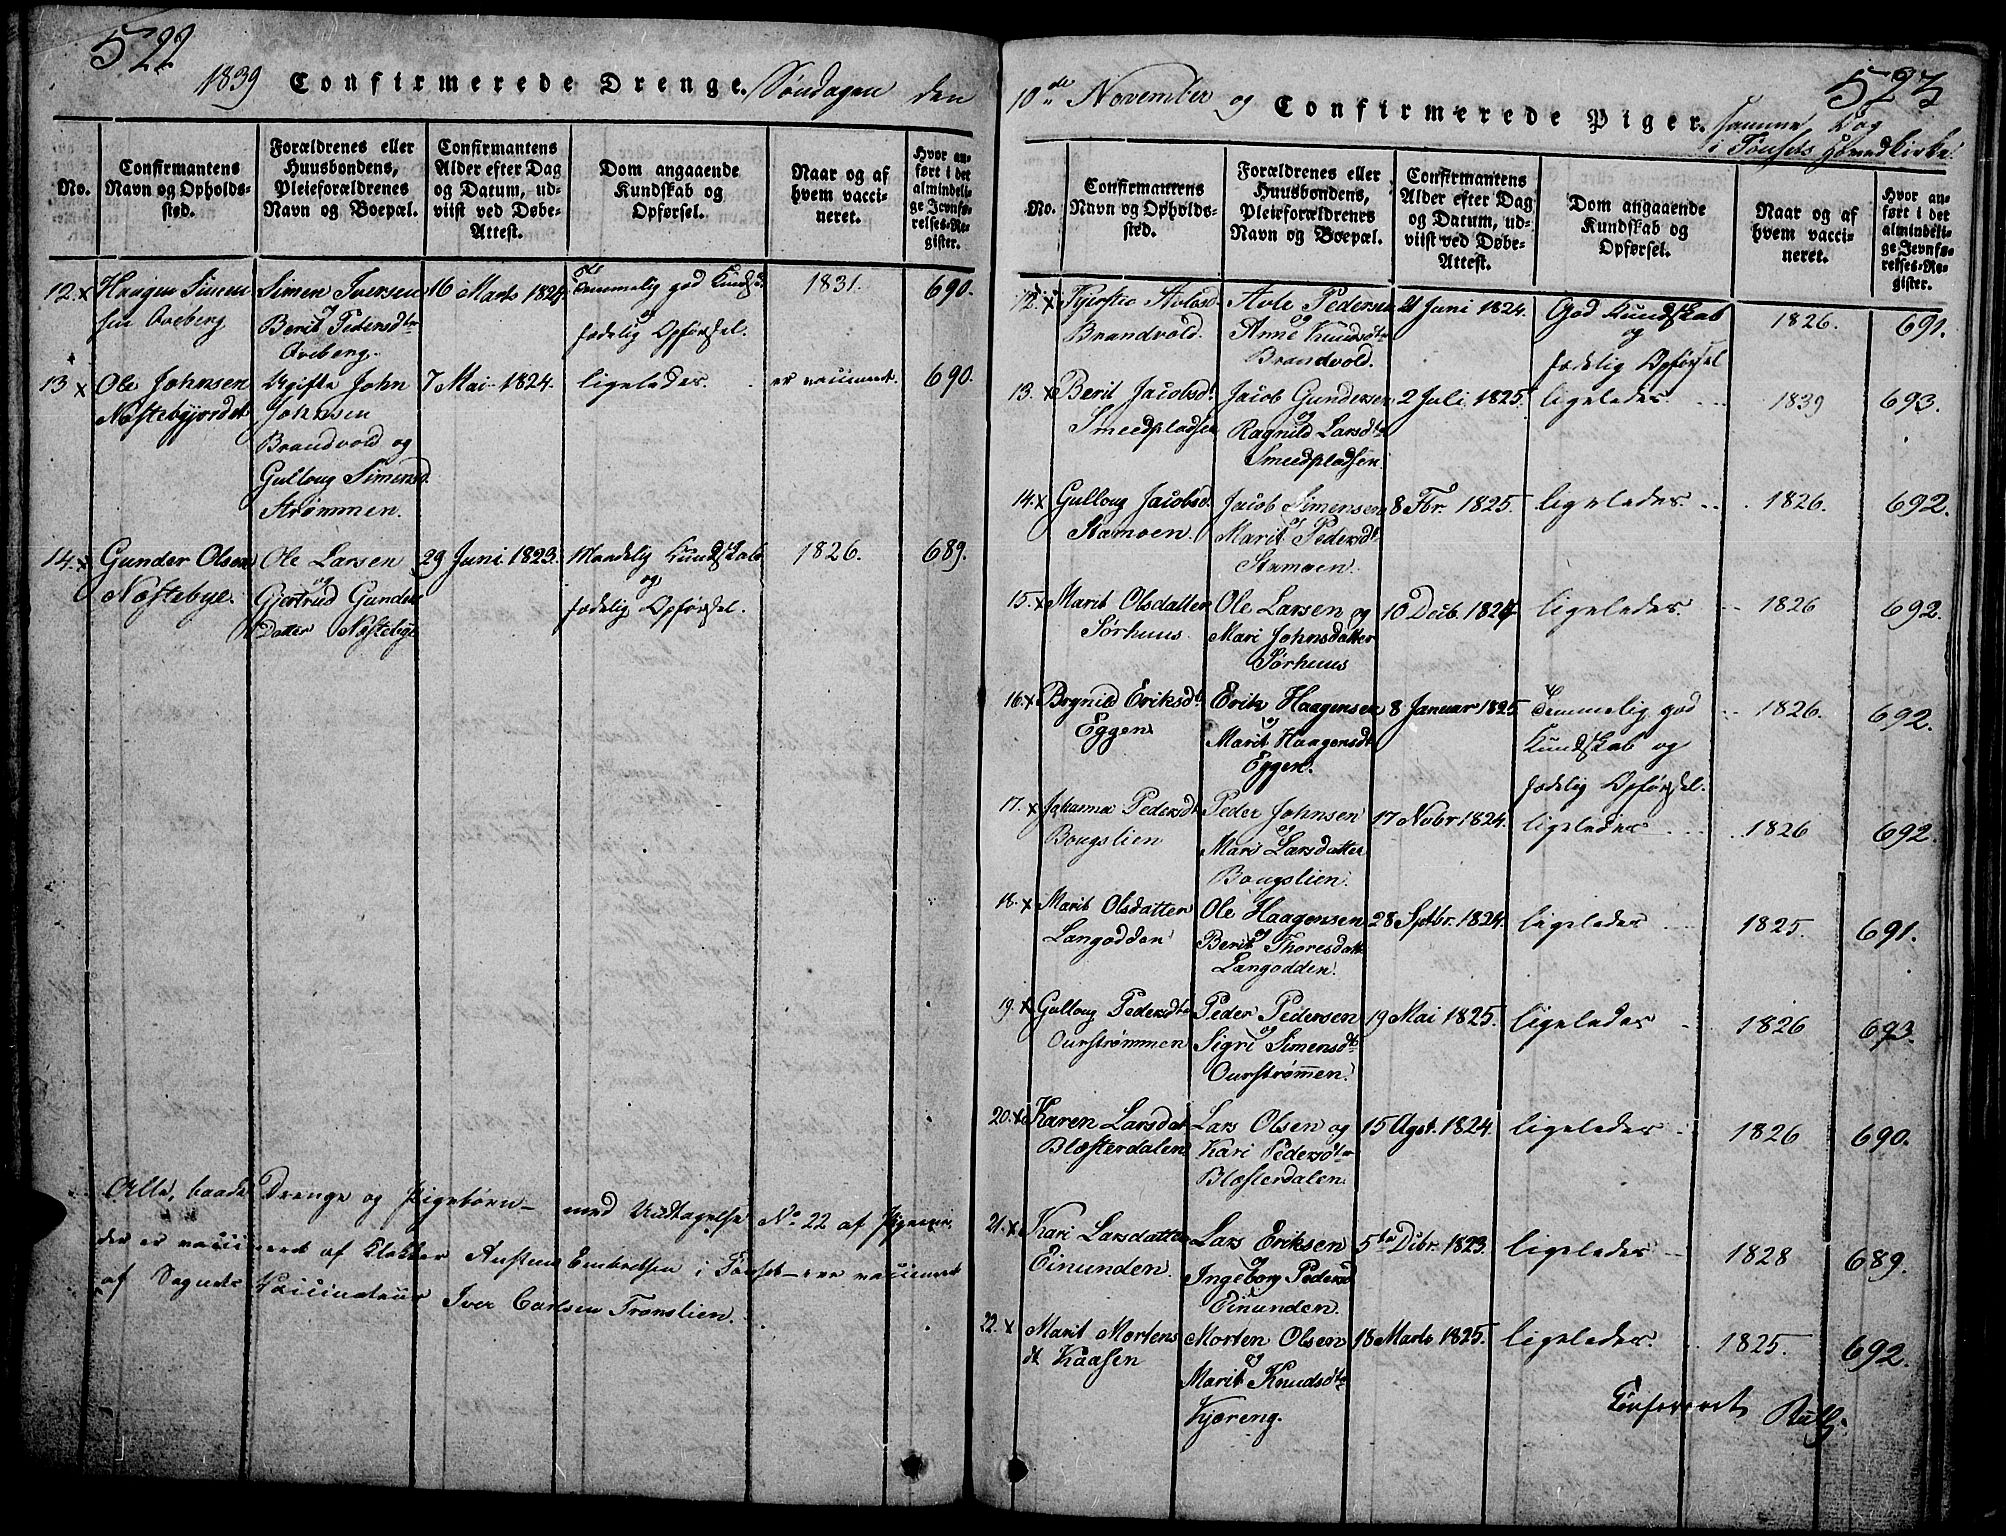 522
1839 Confirmerede Drenge. Søndagen den
No.
Confirmantens Navn og Opholdssted.
Forældrenes eller Huusbondens, Pleieforældrenes Navn og Boepæl.
Confirmantens Alder efter Dag og Datum, udviist ved Døbe-Attest.
Dom angaaende Kundskab og Opførsel.
Naar og af hvem vaccineret.
Hvor anført i det almindelige Jevnførelses-Register.
12. x Haagen Simensen Aaeberg
Simen Iversen og Berit Pedersdtr
16 Marts 1824.
Temmelig god Kundsk. og sædelig Opførsel.
1831.
690.
13 x Ole Johnsen
Ugifte John Johnsen Brandvold og Gulloug Simensd. Strømmen.
7 Mai 1824.
ligeledes.
er vaccineret.
690.
14. x Gunder Olsen Næstebye.
Ole Larsen og Gjertrud Gunders Datter Næstebye
29 Juni 1823.
Maadelig Kundskab og sædelig Opførsel.
1826.
689.
Alle, baade Drenge og Pigebørn – med Undtagelse No 22 af Pigerne,
der er vaccineret af Klokker Austen Embretsen i Tønset – ere vaccineret
af Sognets Vaccinateur Iver Carlsen Tronslien.
523
10de November og Confirmerede Piger. samme Dag
i Tønsets Hovedkirke.
No.
Confirmantens Navn og Opholdssted.
Forældrenes eller Huusbondens, Pleieforældrenes Navn og Boepæl.
Confirmantens Alder efter Dag og Datum, udviist ved Døbe-Attest.
Dom angaaende Kundskab og Opførsel.
Naar og af hvem vaccineret.
Hvor anført i det almindelige Jevnførelses-Register.
12. x Kjerstie Avlesd. Brandvold.
Avle Pedersen og Anne Knudsdtr Brandvold.
21 Juni 1824.
God Kundskab og sædelig Opførsel
1826.
691.
13. x Berit Jacobsdt. Smeedpladsen
Jacob Gundersen og Ragnild Larsdtr Smeedpladsen
2 Juli 1825.
ligeledes.
1839
693.
14. x Gulloug Jacobsd. Stamoen.
Jacob Simensen og Marit Pedersdt. Stamoen.
8 Fbr. 1825.
ligeledes
1826.
692.
15. x Marit Olsdatter Sørhuus
Ole Larsen og Mari Johnsdatter Sørhuus
10 Decb. 1824
ligeledes
1826
692.
16. x Brynild Eriksdt. Eggen
Erik Haagensen og Marit Haagensdt. Eggen.
8 Januar 1825.
Temmelig god Kundskab og sædelig Opførsel.
1826.
692.
17. x Johanna Pedersdt. Bougslien
Peder Johnsen og Mari Larsdatter Bougslien.
17 Novbr 1824.
ligeledes
1826
692.
18. x Marit Olsdatter Langodden
Ole Haagensen og Berit Thoresdatt. Langodden.
28 Septbr. 1824.
ligeledes
1825.
691.
19. x Gulloug Pedersdtr Ourstrømmen
Peder Pedersen og Sigri Simensdtr Ourstrømmen.
19 Mai 1825.
ligeledes
1826
693.
20. x Karen Larsdat. Blæsterdalen
Lars Olsen og Kari Pedersdtr Blæsterdalen.
15 Agst. 1824.
ligeledes
1826
690.
21. x Kari Larsdatter Einunden.
Lars Eriksen og Ingeborg Pedersd. Einunden.
5te Dcbr. 1823.
ligeledes
1828
689.
22. x Marit Mortensdt. Kaasen
Morten Olsen og Marit Knudsdtr Kjæreng.
18 Marts 1825.
ligeledes.
1825.
692.